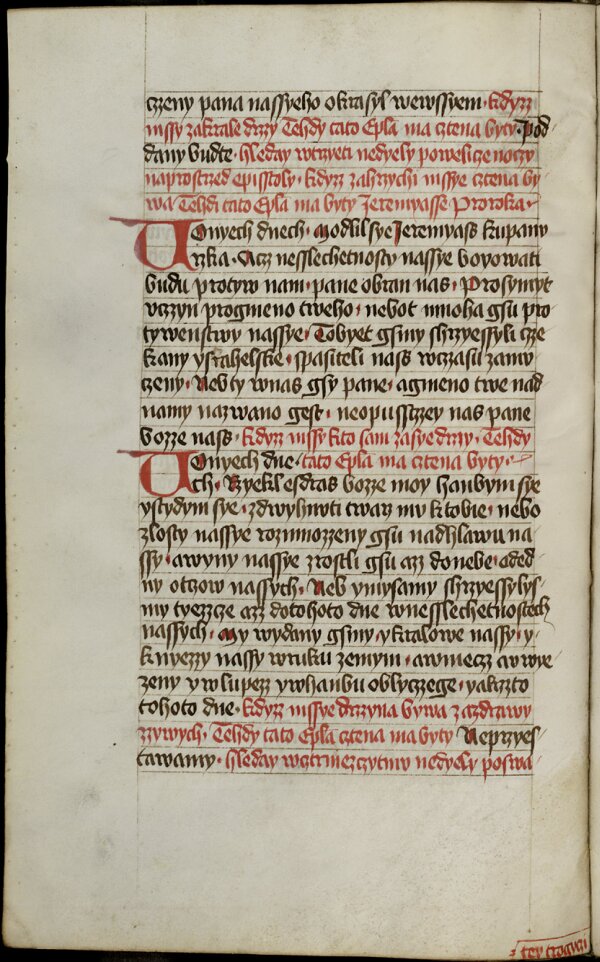 czeny pana nassyeho okrasyl wewssyem · kdyzz
mssy zakrale drzy Tehdy tato Epla ma cztena byty · Pod
dany budte · hleday wtrzeti nedyely powelicze noczy
naprostrzed episstoly · kdyz zahrzychi mssye cztena by
wa Tehdi tato Epla ma byty Jeremyasse Proroka ·
Wonyech dnech · Modlil sye Jeremyass kupanu
rzka · Acz nesslechetnosty nassye boyowati
budu protyw nam · pane obran nas · Prosymyt
vczyn progmeno tweho · nebot mnoha gsu pro
tywenstwy nassye · Tobyet gsmy shrzyessyli cze
kany ysrahelske · spasiteli nass wczasu zamu
czeny · Neb ty wnas gsy pane · agmeno twe nad
namy nazwano gest · neopusstzey nas pane
bozze nass · kdyz mssy kto sam zasye drzy · Tehdy
Wonyech dne · tato Epla ma cztena byty ·
ch · Rzyekl esdras bozze moy hanbym sye
ystydym sye · zdwyhnuti twarz mu ktobie · nebo
zlosty nassye rozmnozzeny gsu nadhlawu na
ssy · awyny nassye zrostli gsu azz donebe · aded
ny otczow nassych · Neb ymysamy shrzyessylys
my tyezzcze azz dotohoto dne wnesslechetnostech
nassych · My wydany gsmy · ykralowe nassy · y
knyezzy nassy wruku zemym · awmecz awwye
zeny ywlupezz ywhanbu oblyczege · yakzto
tohoto dne · kdyz mssye drzyna bywa zazdrawy
zzywych · Tehdy tato Epla cztena ma byty Neprzyes
tawamy · hleday wcztrmezczytmu nedyely poswa